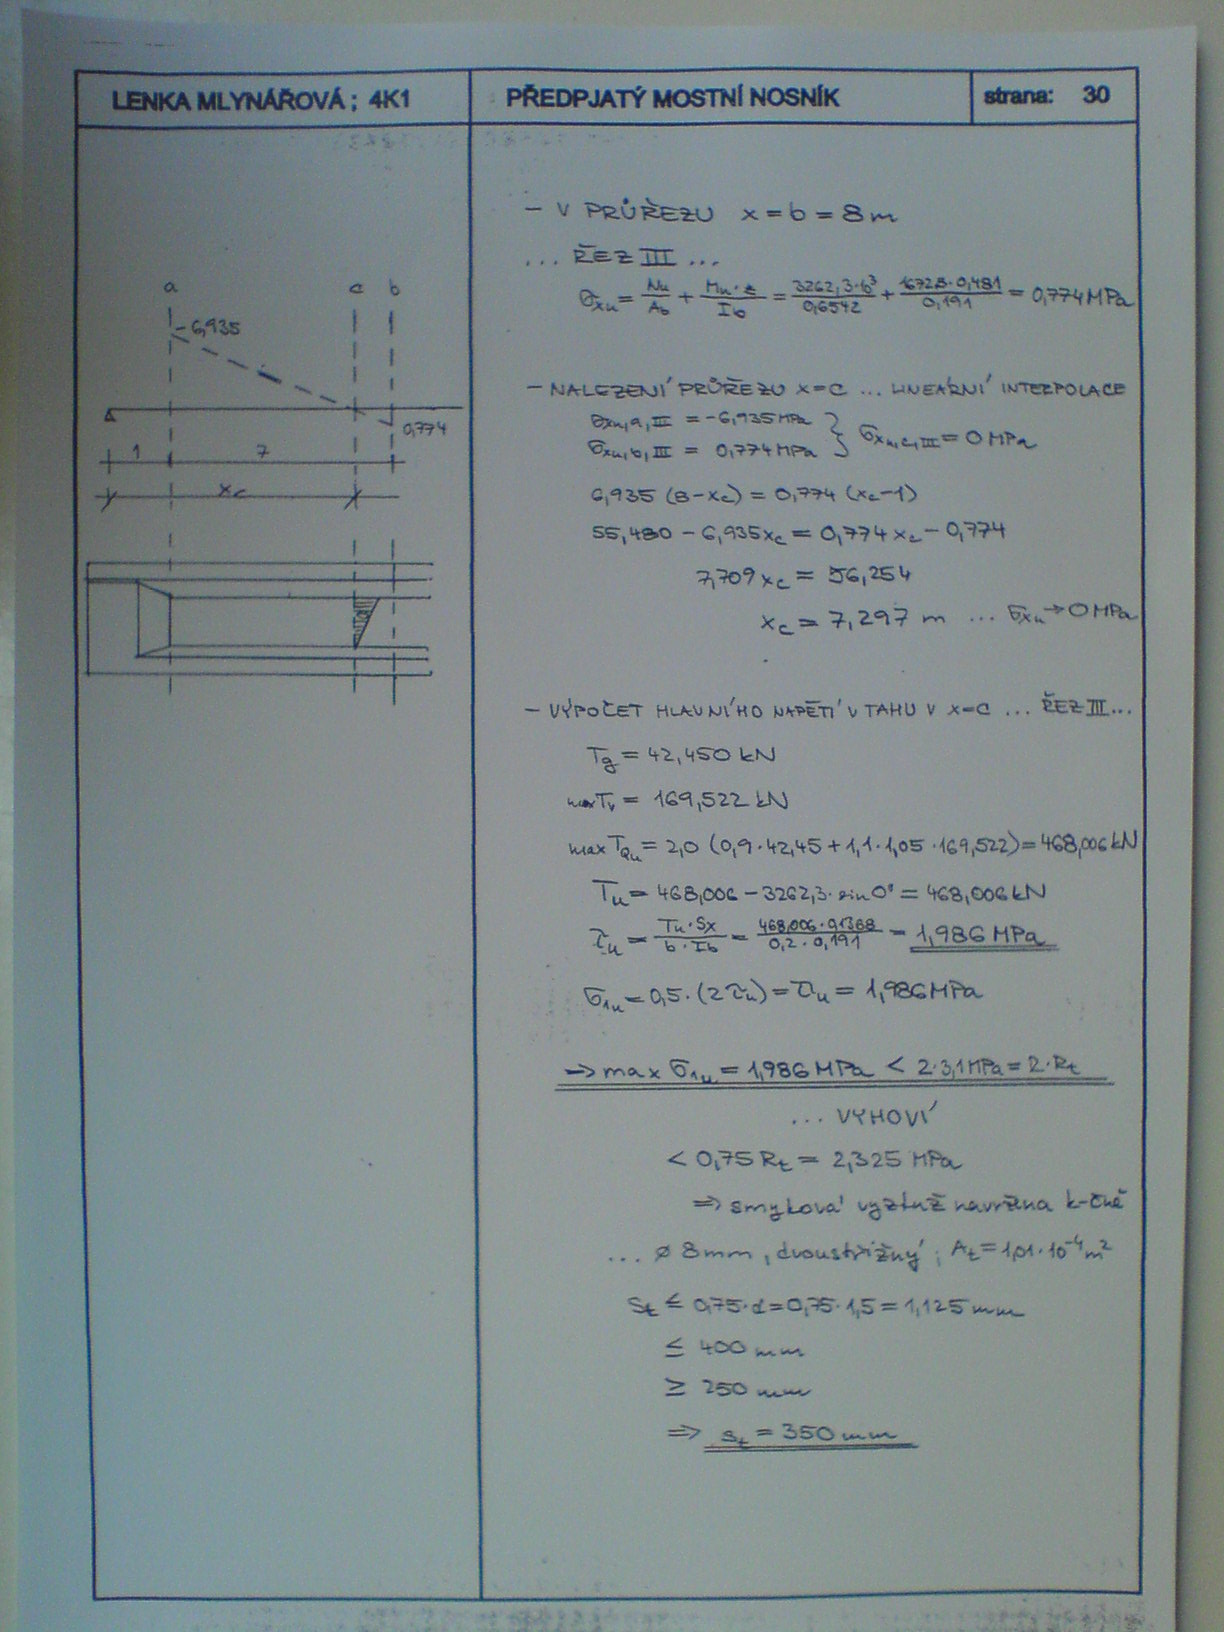 LENKA MLYNÁŘOVÁ; 4K1
PŘEDPJATÝ MOSTNÍ NOSNÍK
strana: 30
a c b
-6,935
0,774
1 7
xc
- V PRŮŘEZU x = b = 8 m
... ŘEZ III ...
σxu = Nu/Ab + Mu·z/Ib = + = 0,774 MPa
- NALEZENÍ PRŮŘEZU x=c ... LINEÁRNÍ INTERPOLACE
σxu,a,III = -6,935 MPa
σxu,b,III = 0,774 MPa } σxu,c,III = 0 MPa
6,935 (8-xc) = 0,774 (xc-1)
55,480 - 6,935xc = 0,774 xc - 0,774
7,709 xc = 56,254
xc = 7,297 m ... σxu → 0 MPa
- VÝPOČET HLAVNÍHO NAPĚTÍ V TAHU V x=c ... ŘEZ III...
Tg = 42,450 kN
max Tv = 169,522 kN
max TQu = 2,0 (0,9·42,45 + 1,1·1,05·169,522) = 468,006 kN
Tu = 468,006 - 3262,3·sin 0° = 468,006 kN
τu = Tu·Sx/b·Ib = 468,006·0,1368/0,2·0,191 = 1,986 MPa
σ1u = 0,5·(2τu) = τu = 1,986 MPa
→ max σ1u = 1,986 MPa < 2·3,1 MPa = 2·Rt
... VYHOVÍ
< 0,75 Rt = 2,325 MPa
⇒ smyková výztuž navržena k-čně
... ø 8 mm, dvoustřižný; At = 1,01·10⁻⁴ m²
st ≤ 0,75·d = 0,75·1,5 = 1,125 mm
≤ 400 mm
≥ 250 mm
⇒ st = 350 mm